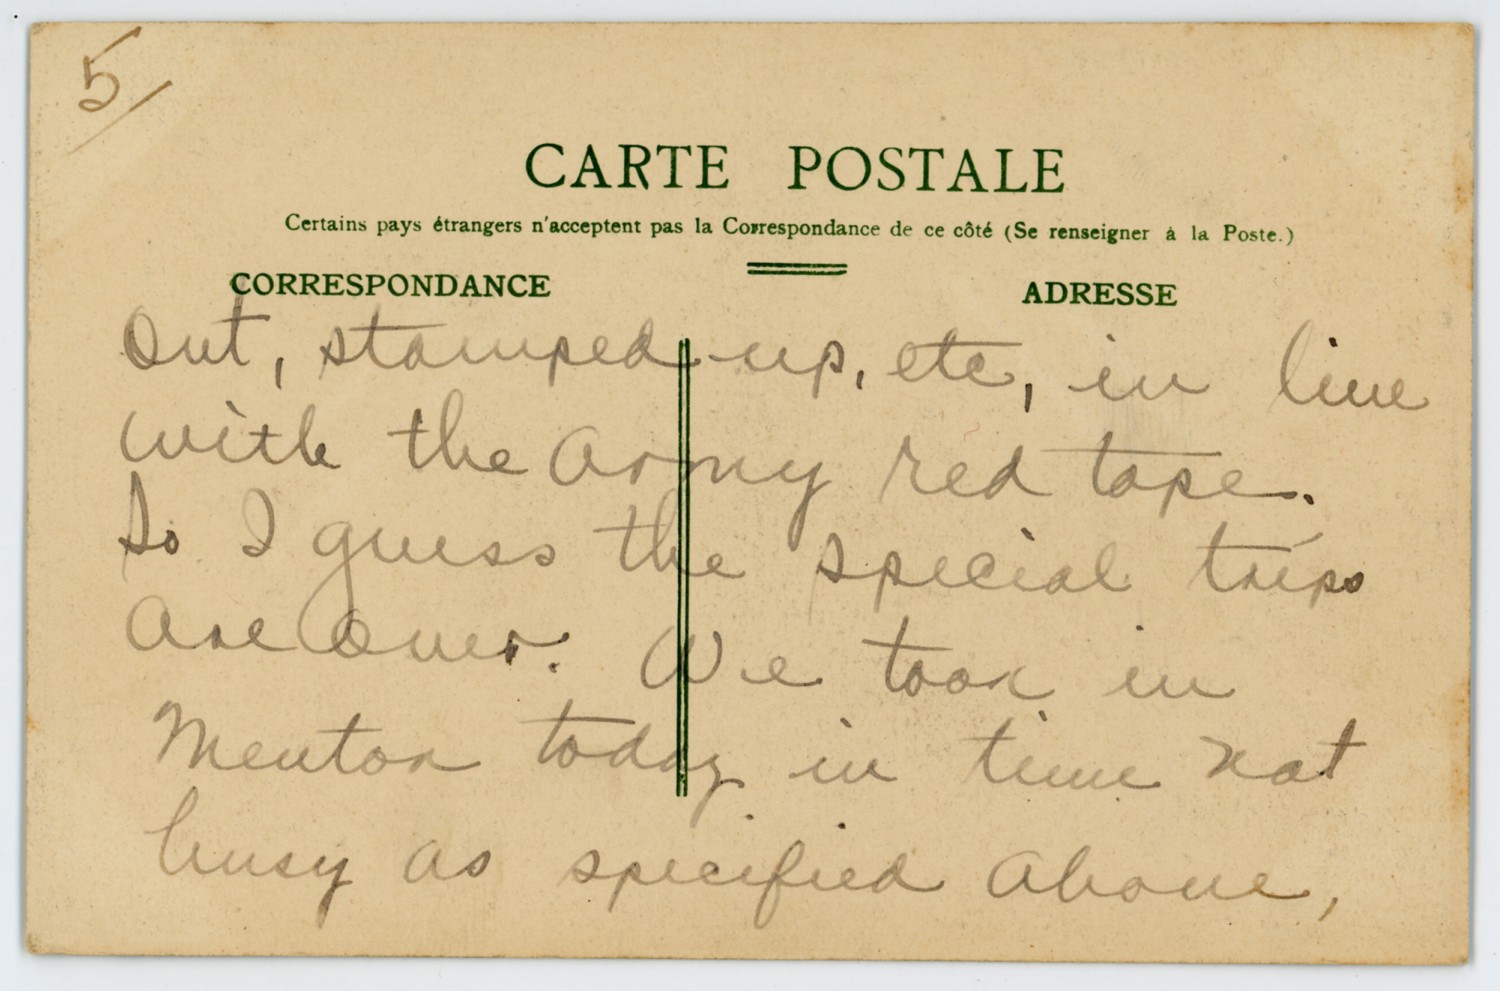 5/
CARTE POSTALE
Certains pays étrangers n'acceptent pas la Correspondance de ce côté (Se renseigner à la Poste.)
CORRESPONDANCE ADRESSE
out, stamped up, etc, in line
with the Army red tape.
So I guess the special trips
are over. We took in
Menton today in time not
busy as specified above,